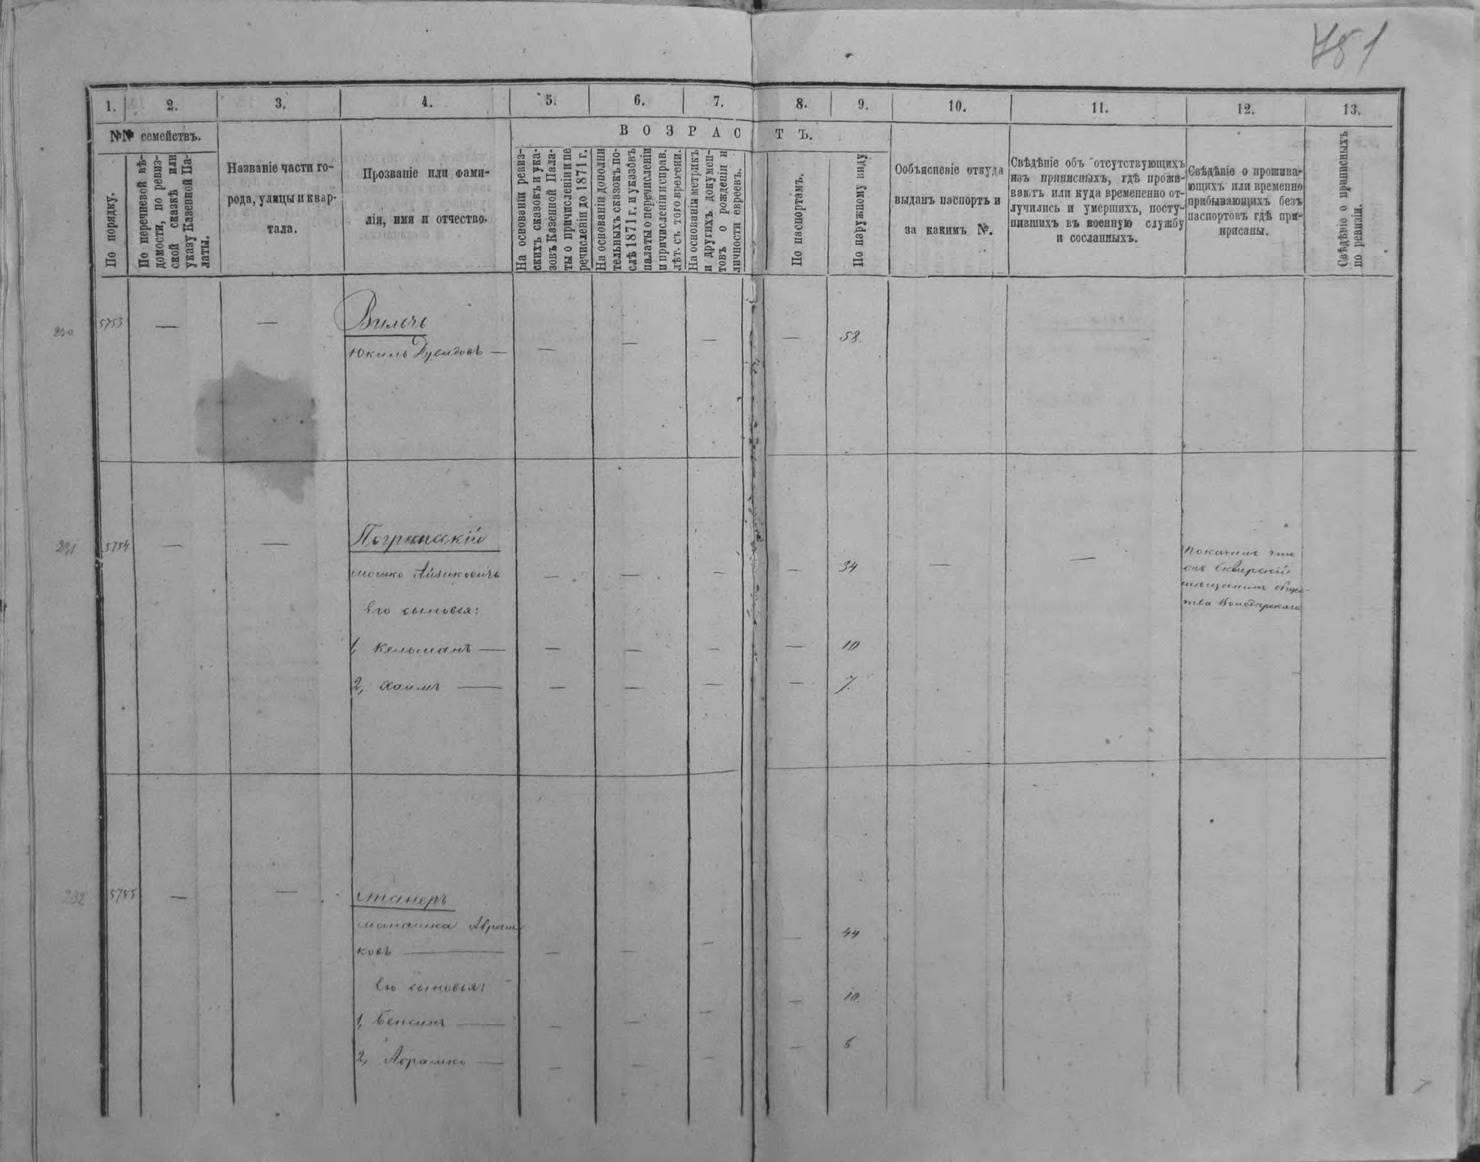 781
1. 2. 3. 4. 5. 6. 7. 8. 9. 10. 11. 12. 13.
№№ семействъ.
По порядку.
По перечневой вѣ-
домости, по ревиз-
ской сказкѣ или
указу Казенной Па-
латы.
Названіе части го-
рода, улицы и квар-
тала.
Прозваніе или фами-
лія, имя и отчество.
ВОЗРАСТЪ.
На основаніи ревиз-
скихъ сказокъ и ука-
зовъ Казенной Пала-
ты о причисленіи и пе
речисленіи до 1871 г.
На основаніи дополни
тельныхъ сказокъ по-
слѣ 1871 г. и указовъ
палаты о перечисленіи
и причисленіи и справ.
лѣт. съ того времени.
На основаніи метрикъ
и другихъ докумен-
товъ о рожденіи и
личности евреевъ.
По паспортамъ.
По наружному виду
Ообъясненіе откуда
выданъ паспортъ и
за какимъ №.
Свѣдѣніе объ отсутствующихъ
изъ приписныхъ, гдѣ прожи-
ваютъ или куда времененно от-
лучились и умершихъ, посту-
пившихъ въ военную службу
и сосланныхъ.
Свѣдѣніе о прожива-
ющихъ или временно
прибывающихъ безъ
паспортовъ гдѣ при-
писаны.
Свѣдѣніе о приписныхъ
по ревизіи.
230 5753 — — Вильчъ
Юкиль Дувидовъ — — — — — 58.
231 5754 — —
Мошко Айзиковичъ — — — — 34 — —
Его сыновья:
1, Кельманъ — — — — — 10
2, Хаимъ — — — — — 7.
Показалъ что
онъ Сквирскій
мѣщанинъ общес-
тва Володарскаго
232 5755 — —
Абрам-
ковъ — — — — — 44
Его сыновья:
1, Бенсинъ — — — — — 10.
2, Абрамко — — — — — 6